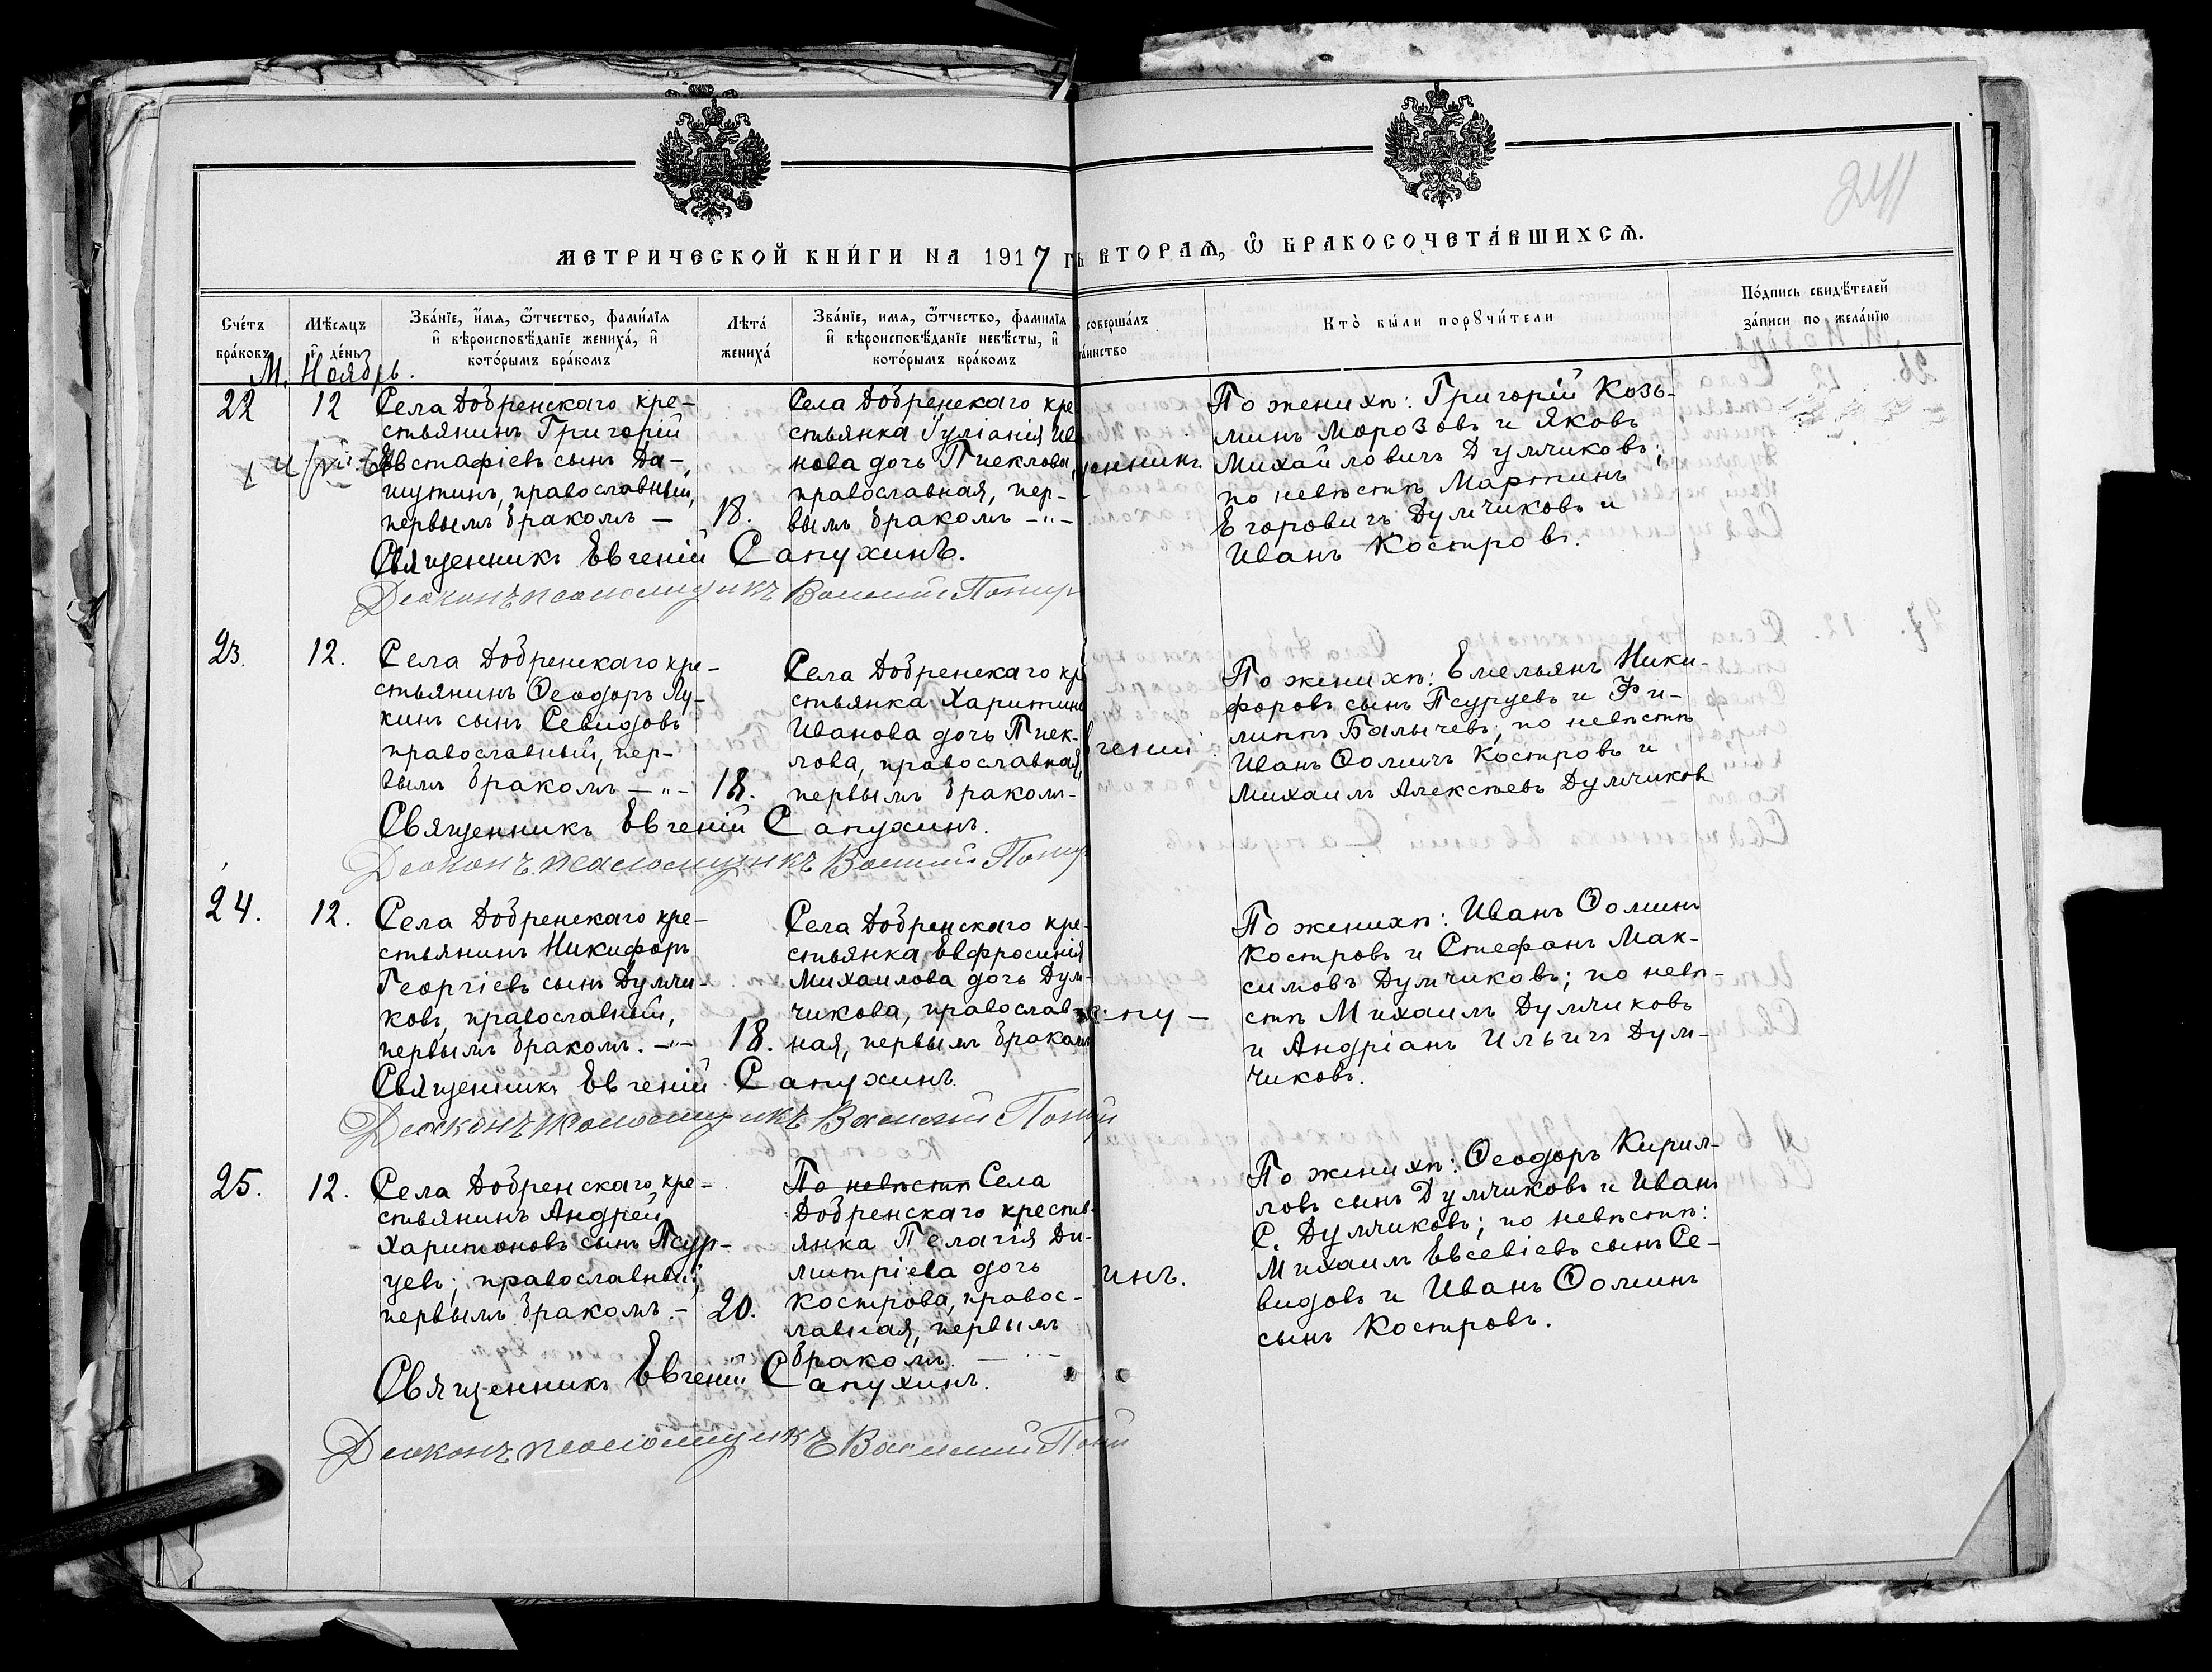 241
МЕТРИЧЕСКОЙ КНИ́ГИ НА 1917 ГЪ ВТОРАѦ, Ѿ БРАКОСОЧЕТА́ВШИХСѦ.
Сче́тъ бра́ковъ
Мѣ́сяцъ и҆ де́нь
Зва́нїе, и҆́мѧ, ѻ҆́тчество, фами́лїѧ и҆ вѣроисповѣ́данїе жениха́, и҆ кото́рымъ бра́комъ
Лѣта́ жениха́
Зва́нїе, имѧ, ѻ҆́тчество, фамилїѧ и҆ вѣроисповѣ́данїе невѣ́сты, и҆ кото́рымъ бра́комъ
совершалъ
Кто̀ бы́ли порꙋчи́тели
По́дпись свидѣ́телей за́писи по жела́нїю
М. Ноябрь.
22
12
Села Добренскаго кре-
стьянинъ Григорій
Евстафіевъ сынъ Да-
шутинъ, православный,
первымъ бракомъ —
18.
Села Добренскаго кре
стьянка Іуліанія Ива
нова дочь Пчеклова,
православная, пер-
вымъ бракомъ -"-
енникъ
По женихѣ: Григорій Козь-
минъ Морозовъ и Яковъ
Михайловичъ Думчиковъ;
по невѣстѣ Мартинъ
Егоровичъ Думчиковъ и
Иванъ Костровъ.
Священникъ Евгеній Сапухинъ.
Діаконъ псаломщикъ Василій
23.
12.
Села Добренскаго кре-
стьянинъ Ѳеодоръ Лу-
кинъ сынъ Севидовъ
православный, пер-
вымъ бракомъ —"-
18.
Села Добренскаго кр
стьянка Харитина
Иванова дочь Пчек-
лова, православная,
первымъ бракомъ-
геній
По женихѣ: Емельянъ Ники-
форовъ сынъ Псурцевъ и Фи-
липпъ Балычевъ; по невѣстѣ
Иванъ Ѳомичъ Костровъ и
Михаилъ Алексѣевъ Думчиковъ
Священникъ Евгеній Сапухинъ.
Діаконъ псаломщикъ Василій
24.
12.
Села Добренскаго кре-
стьянинъ Никифоръ
Георгіевъ сынъ Думчи-
ковъ, православный,
первымъ бракомъ. -"-
18.
Села Добренскаго кре-
стьянка Евфросинія
Михаилова дочь Дум-
чикова, православ-
ная, первымъ бракомъ
пу-
По женихѣ: Иванъ Ѳоминъ
Костровъ и Стефанъ Мак-
симовъ Думчиковъ; по невѣ-
стѣ Михаилъ Думчиковъ
и Андріанъ Ильичъ Дум-
чиковъ.
Священникъ Евгеній Сапухинъ.
Діаконъ псаломщикъ Василій
25.
12.
Села Добренскаго кре-
стьянинъ Андрей
Харитоновъ сынъ Псур-
цевъ; православный,
первымъ бракомъ. -
20.
По невѣстѣ Села
Добренскаго кресть-
янка Пелагія Ди-
митріева дочь
Кострова, правос-
лавная, первымъ
бракомъ. —
инъ.
По женихѣ: Ѳеодоръ Кирил-
ловъ сынъ Думчиковъ и Иванъ
С. Думчиковъ; по невѣстѣ:
Михаилъ Евсевіевъ сынъ Се-
видовъ и Иванъ Ѳоминъ
сынъ Костровъ.
Священникъ Евгеній Сапухинъ.
Діаконъ псаломщикъ Василій